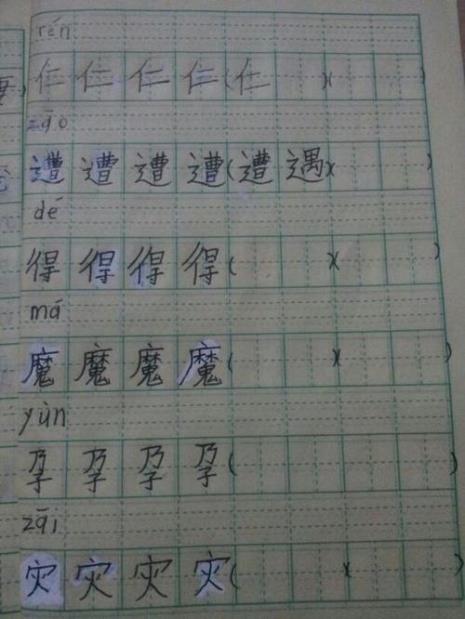 rén
仁 仁 仁 仁 ( )( )
zāo
遭 遭 遭 遭 (遭 遇)( )
dé
得 得 得 得 ( )( )
má
魔 魔 魔 魔 ( )( )
yùn
孕 孕 孕 孕 ( )
zāi
灾 灾 灾 灾 ( )( )